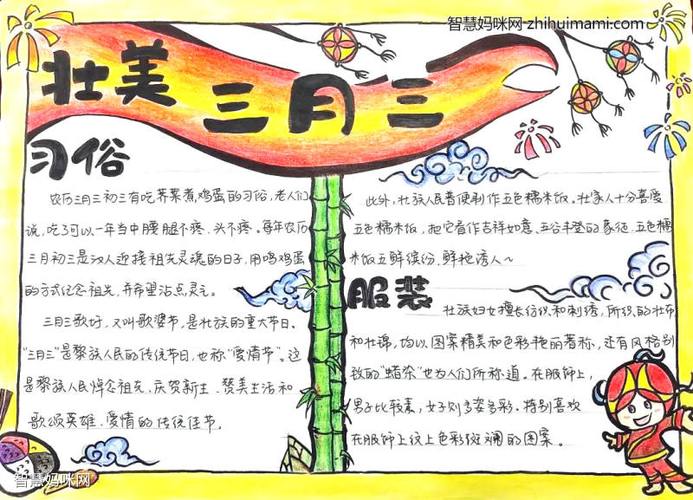 智慧妈咪网-zhihuimami.com
壮美 三月三
习俗
农历三月三初三有吃荠菜煮鸡蛋的习俗,老人们
说,吃了可以一年当中腰腿不疼、头不疼。每年农历
三月初三是汉人迎接祖先灵魂的日子,用鸣鸡蛋
的方式纪念祖先,并希望沾点灵气。
三月三歌好,又叫歌婆节,是壮族的重大节日。
“三月三”是黎族人民的传统节日,也称“爱情节”。这
是黎族人民悼念祖先、庆贺新生、赞美生活和
歌颂英雄、爱情的传统佳节。
此外,壮族人民普便制作五色糯米饭。壮家人十分喜爱
五色糯米饭,把它看作吉祥如意、五谷丰登的象征,五色糯
米饭五鲜缤纷,鲜艳诱人~
服装
壮族妇女擅长纺织和刺绣,所织的壮布
和壮锦,均以图案精美和色彩艳丽著称,还有风格别
致的“蜡染”也为人们所称道。在服饰上,
男子比较素,女子则多姿多彩。特别喜欢
在服饰上纹上色彩斑斓的图案。
智慧妈咪网